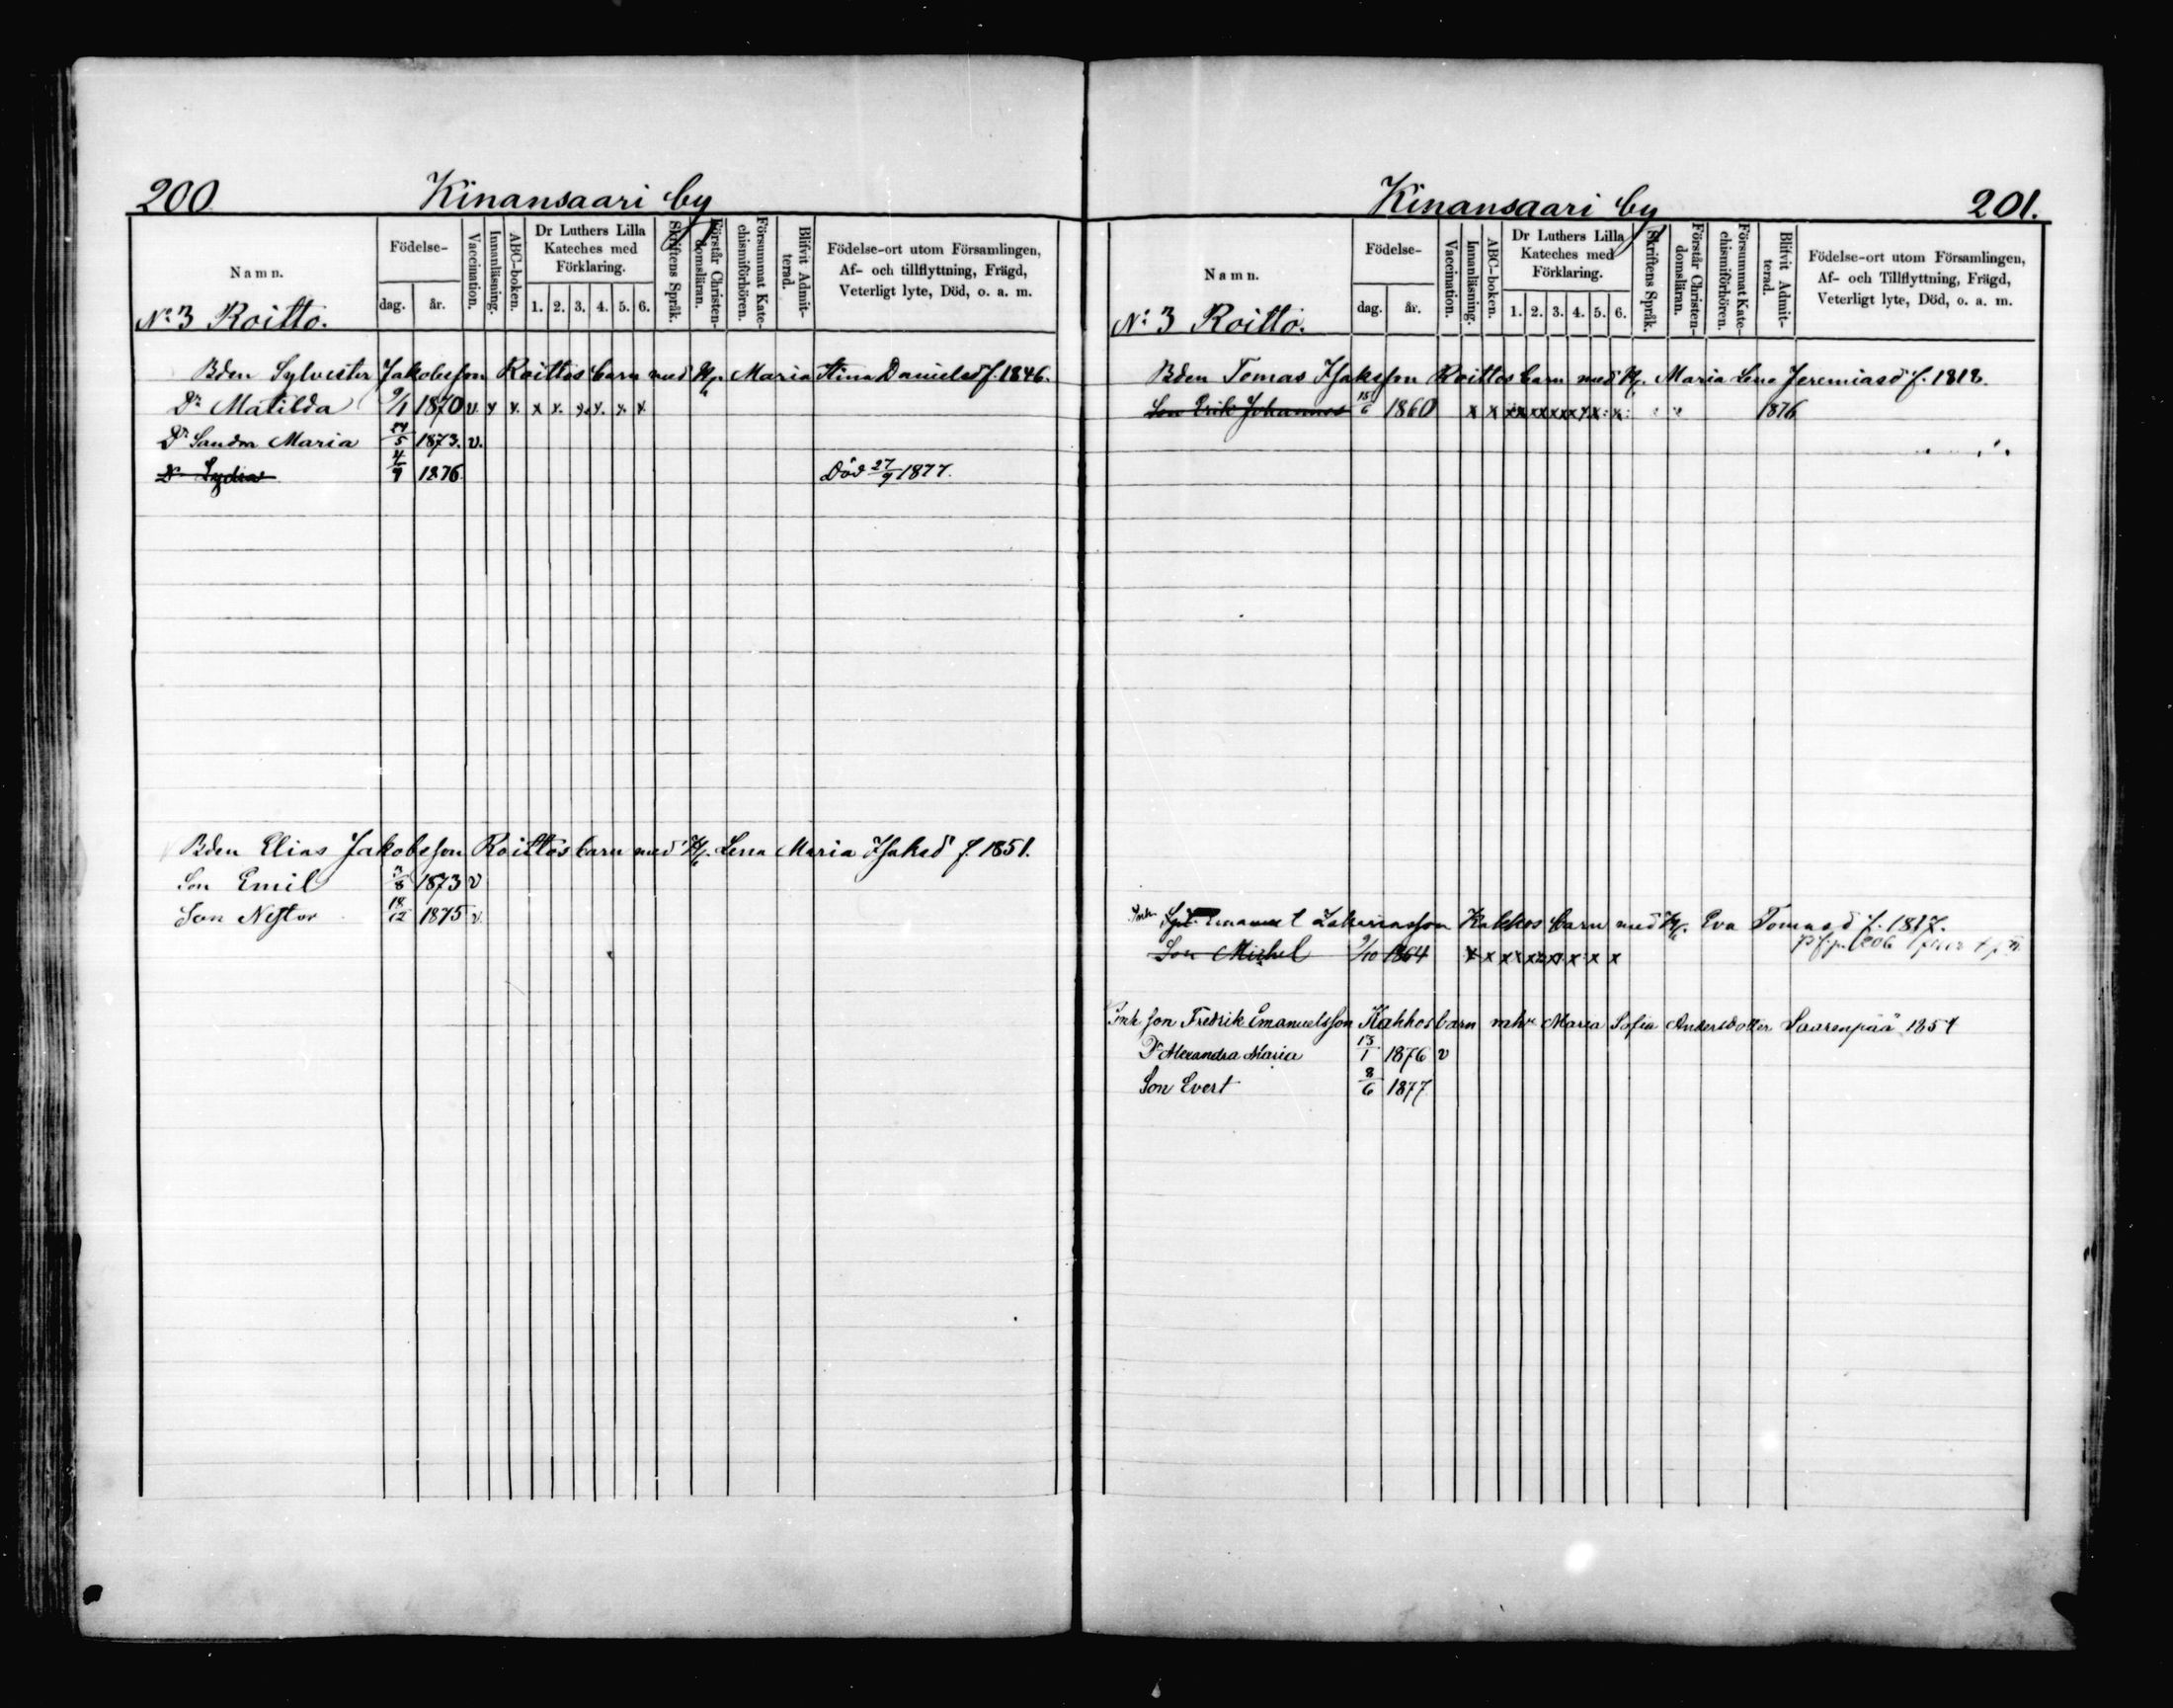 200 Kinansaari by
Namn. Födelse- dag. år. Vaccination. Innanläsning. ABC-boken. Dr Luthers Lilla Kateches med Förklaring. 1. 2. 3. 4. 5. 6. Skriftens Språk. Förstår Christendomsläran. Försummat Katechismiförhören. Blifvit Admitterad. Födelse-ort utom Församlingen, Af- och tillflyttning, Frägd, Veterligt lyte, Död, o. a. m.
No 3 Roitto.
Bden Sylvester Jakobsson Roittos barn med H. Maria Stina Danielsd f. 1846.
Dr Matilda 9/1 1870 v. x x. x x. x. x. x. x
Dr Sandra Maria 24/5 1873. v.
Dr Lydia 4/9 1876 Död 27/9 1877.
Bden Elias Jakobsson Roittos barn med H. Lena Maria Isaksd f. 1851.
Son Emil 3/8 1873 v
Son Nestor 18/12 1875 v.
Kinansaari by 201.
Namn. Födelse- dag. år. Vaccination. Innanläsning. ABC-boken. Dr Luthers Lilla Kateches med Förklaring. 1. 2. 3. 4. 5. 6. Skriftens Språk. Förstår Christendomsläran. Försummat Katechismiförhören. Blifvit Admitterad. Födelse-ort utom Församlingen, Af- och Tillflyttning, Frägd, Veterligt lyte, Död, o. a. m.
No 3 Roitto.
Bden Tomas Isaksson Roittos barn med H. Maria Lena Jeremiasd f. 1818.
Son Erik Johannes 15/6 1860 x x xx xx xx xx x x 1876
Emanuel Zakariasson Kakkos barn med H. Eva Tomasd f. 1817.
206
Son Michel 9/10 1864 x x xx xx x x x x
Inh son Fredrik Emanuelsson Kakkos barn Maria Sofia Andersdotter Saarenpää 1854
Dr Alexandra Maria 13/1 1876 v
Son Evert 8/6 1877